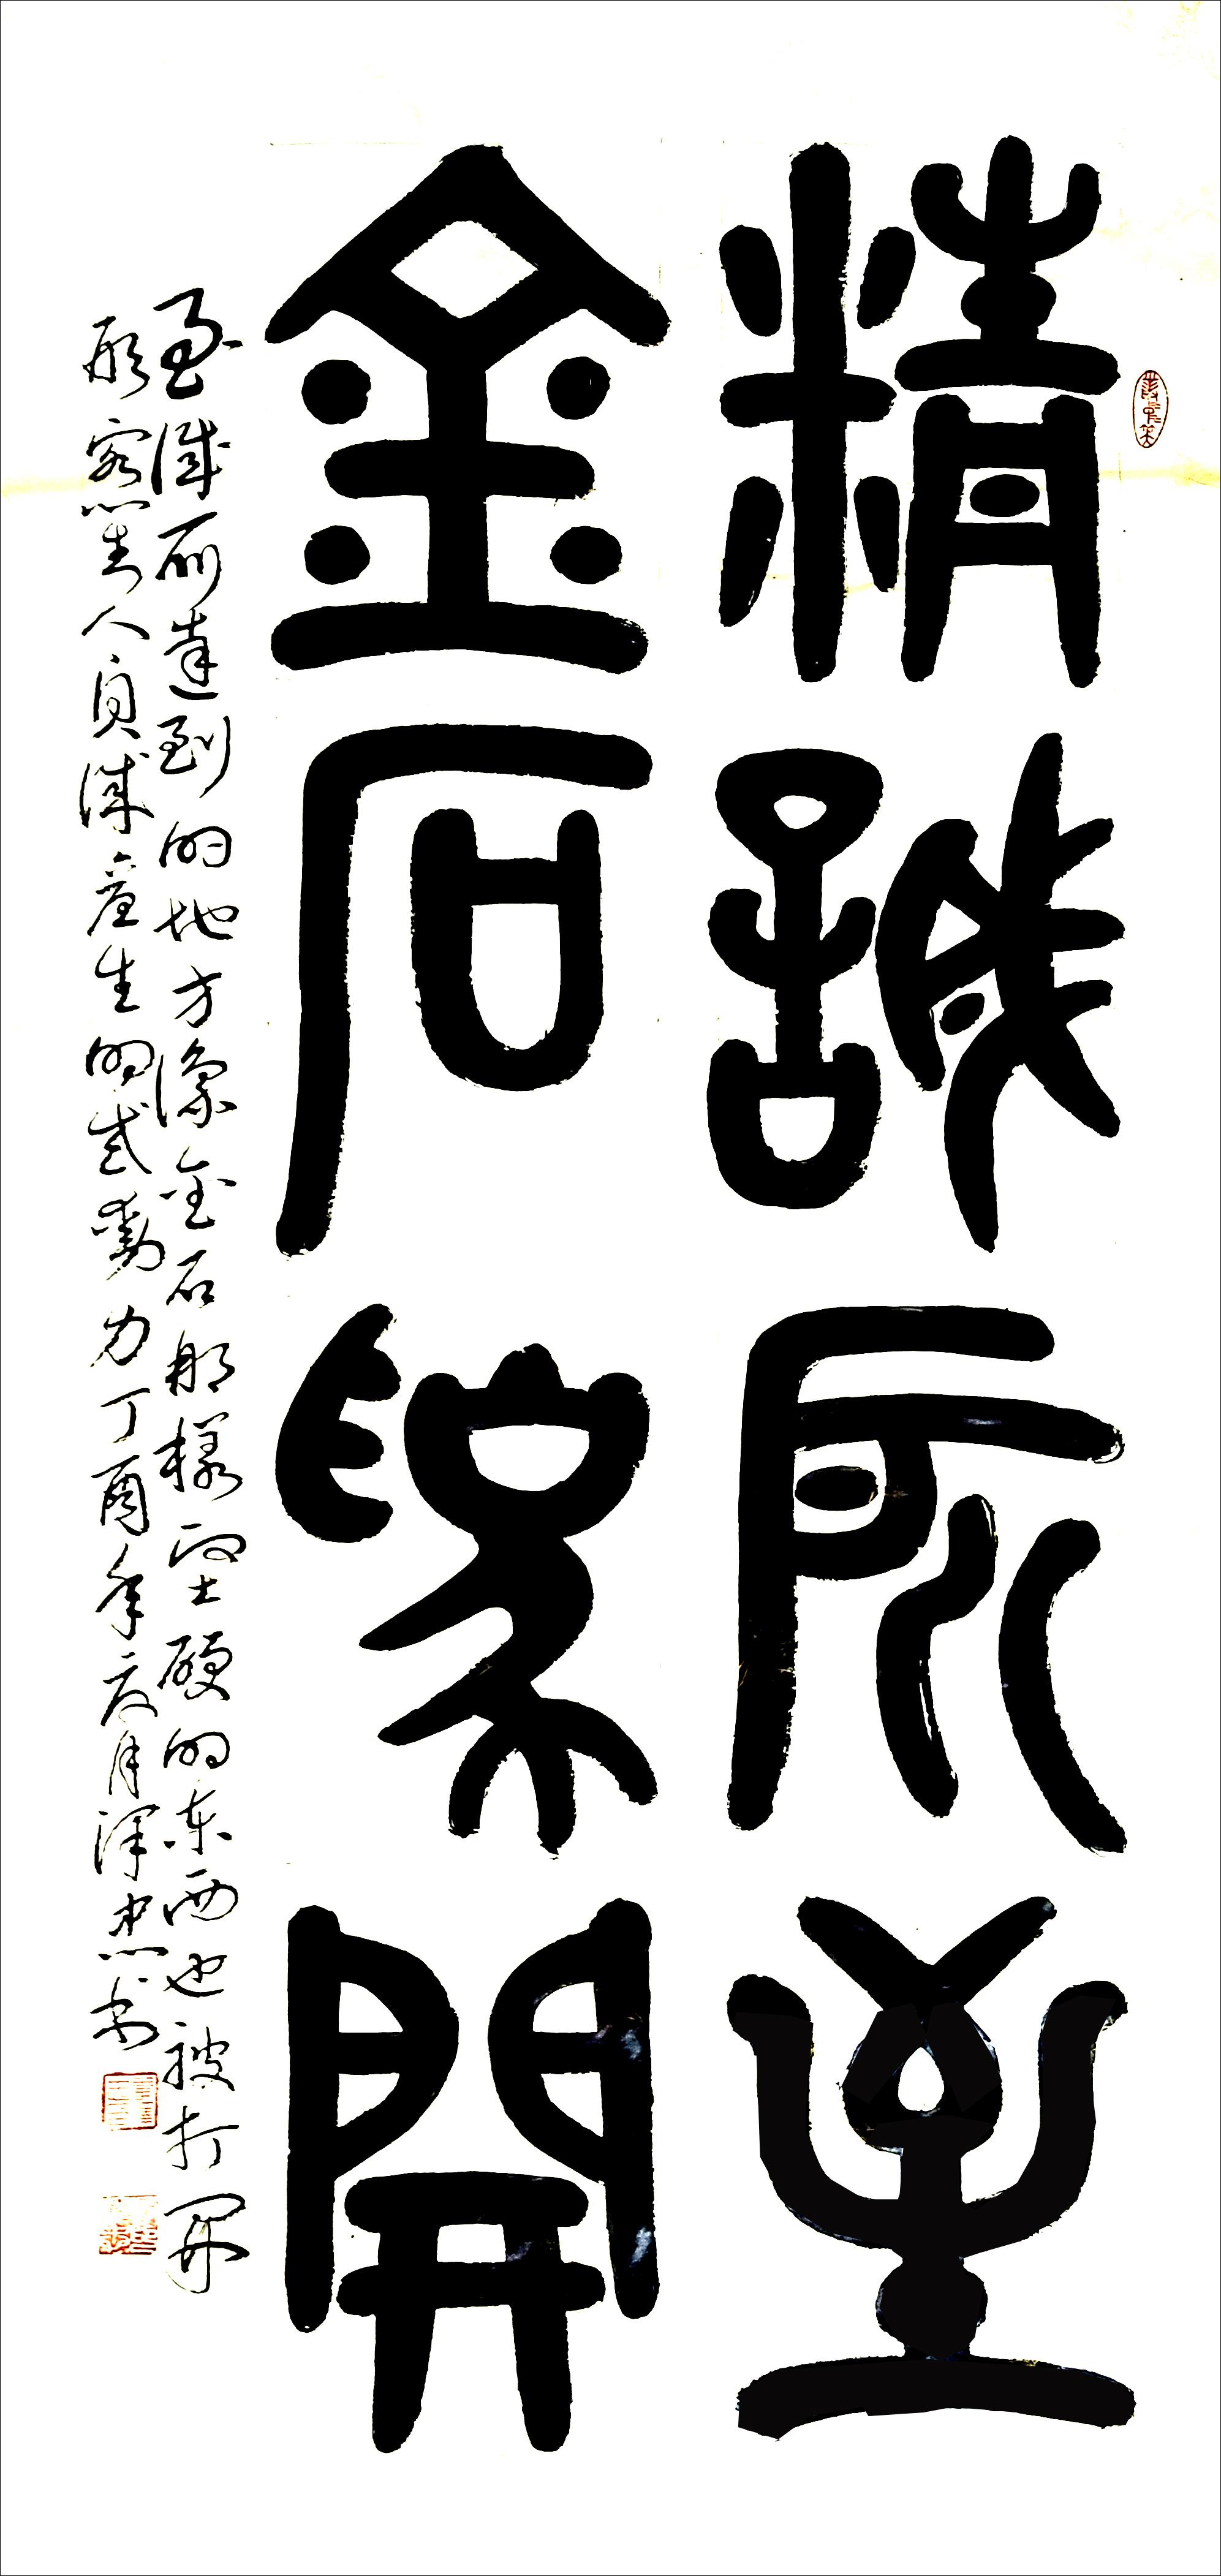 精誠所至
金石為開
至誠所達到的地方像金石那樣堅硬的东西也被打開
形容對人真誠產生的感動力丁酉年夏月澤忠書